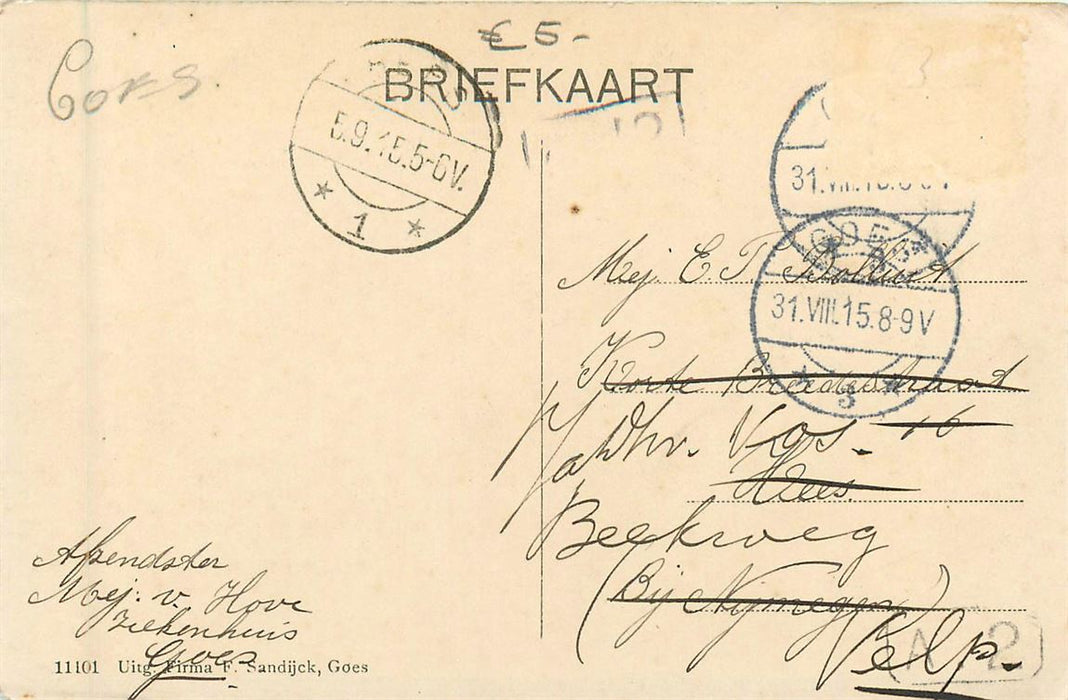 € 5-
Goes
BRIEFKAART
5.9.15.5-6V.
1
31.VIII.15.
GOES
31.VIII.15.8-9V
3
Mej. E. T.
Korte Breedestraat
16
a/d Dhr. Vos.
Hees.
Beekweg
(Bij Nijmegen)
Velp.
A 2
Afzendster
Mej. v. Hove
Ziekenhuis
Goes
11101 Uitg. Firma F. Sandijck, Goes